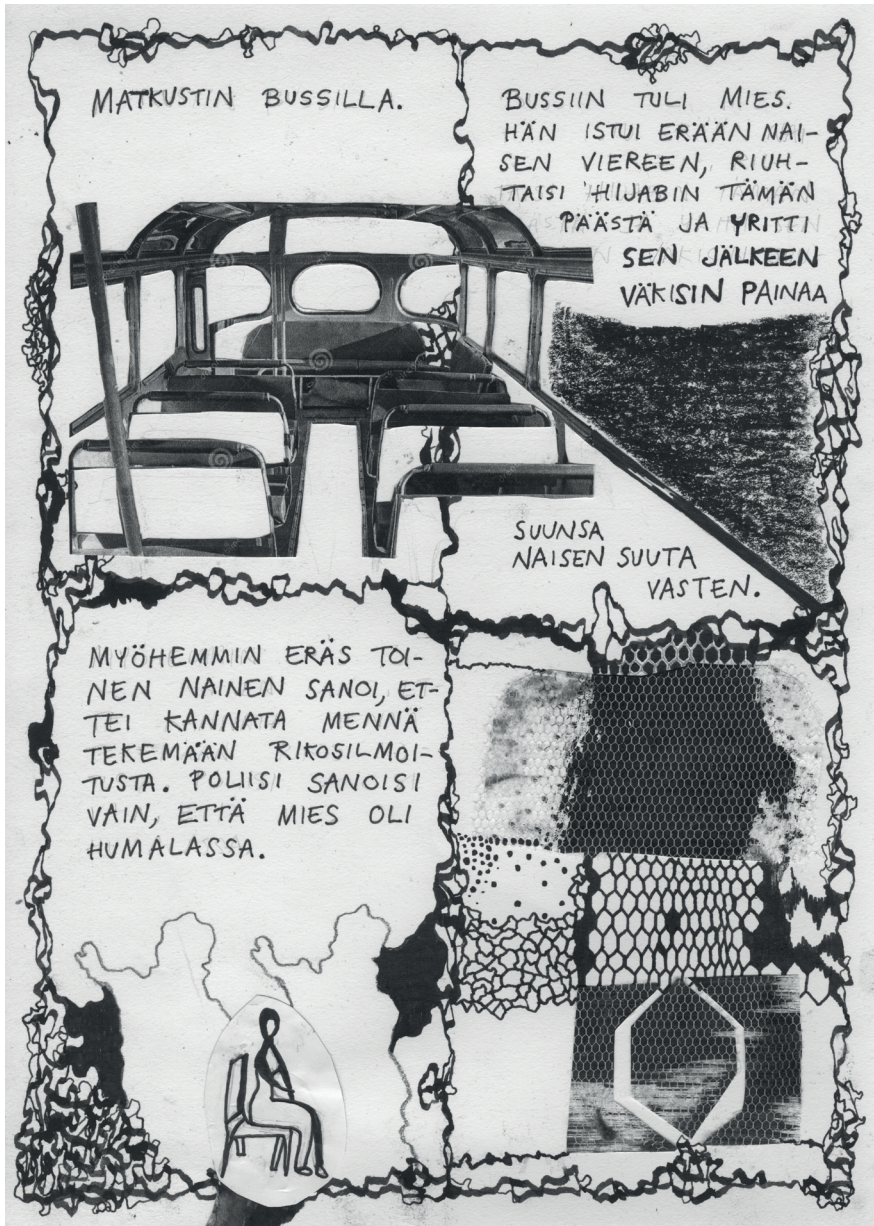 MATKUSTIN BUSSILLA.
BUSSIIN TULI MIES.
HÄN ISTUI ERÄÄN NAI-
SEN VIEREEN, RIUH-
TAISI HIJABIN TÄMÄN
PÄÄSTÄ JA YRITTI
SEN JÄLKEEN
VÄKISIN PAINAA
SUUNSA
NAISEN SUUTA
VASTEN.
MYÖHEMMIN ERÄS TOI-
NEN NAINEN SANOI, ET-
TEI KANNATA MENNÄ
TEKEMÄÄN RIKOSILMOI-
TUSTA. POLIISI SANOISI
VAIN, ETTÄ MIES OLI
HUMALASSA.